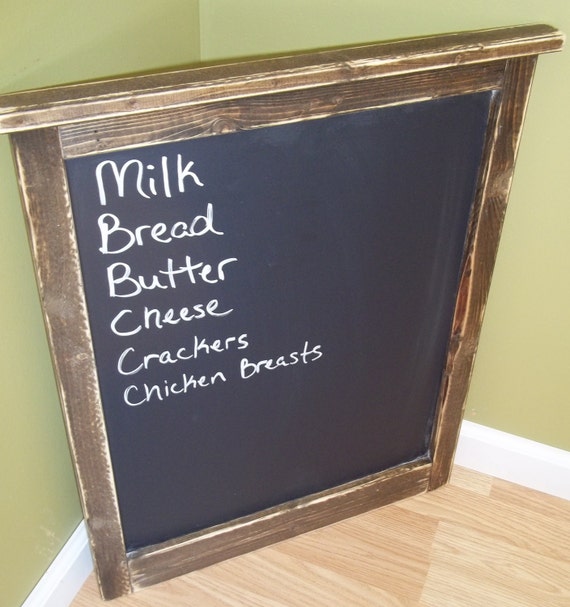 Milk
Bread
Butter
Cheese
Crackers
Chicken Breasts